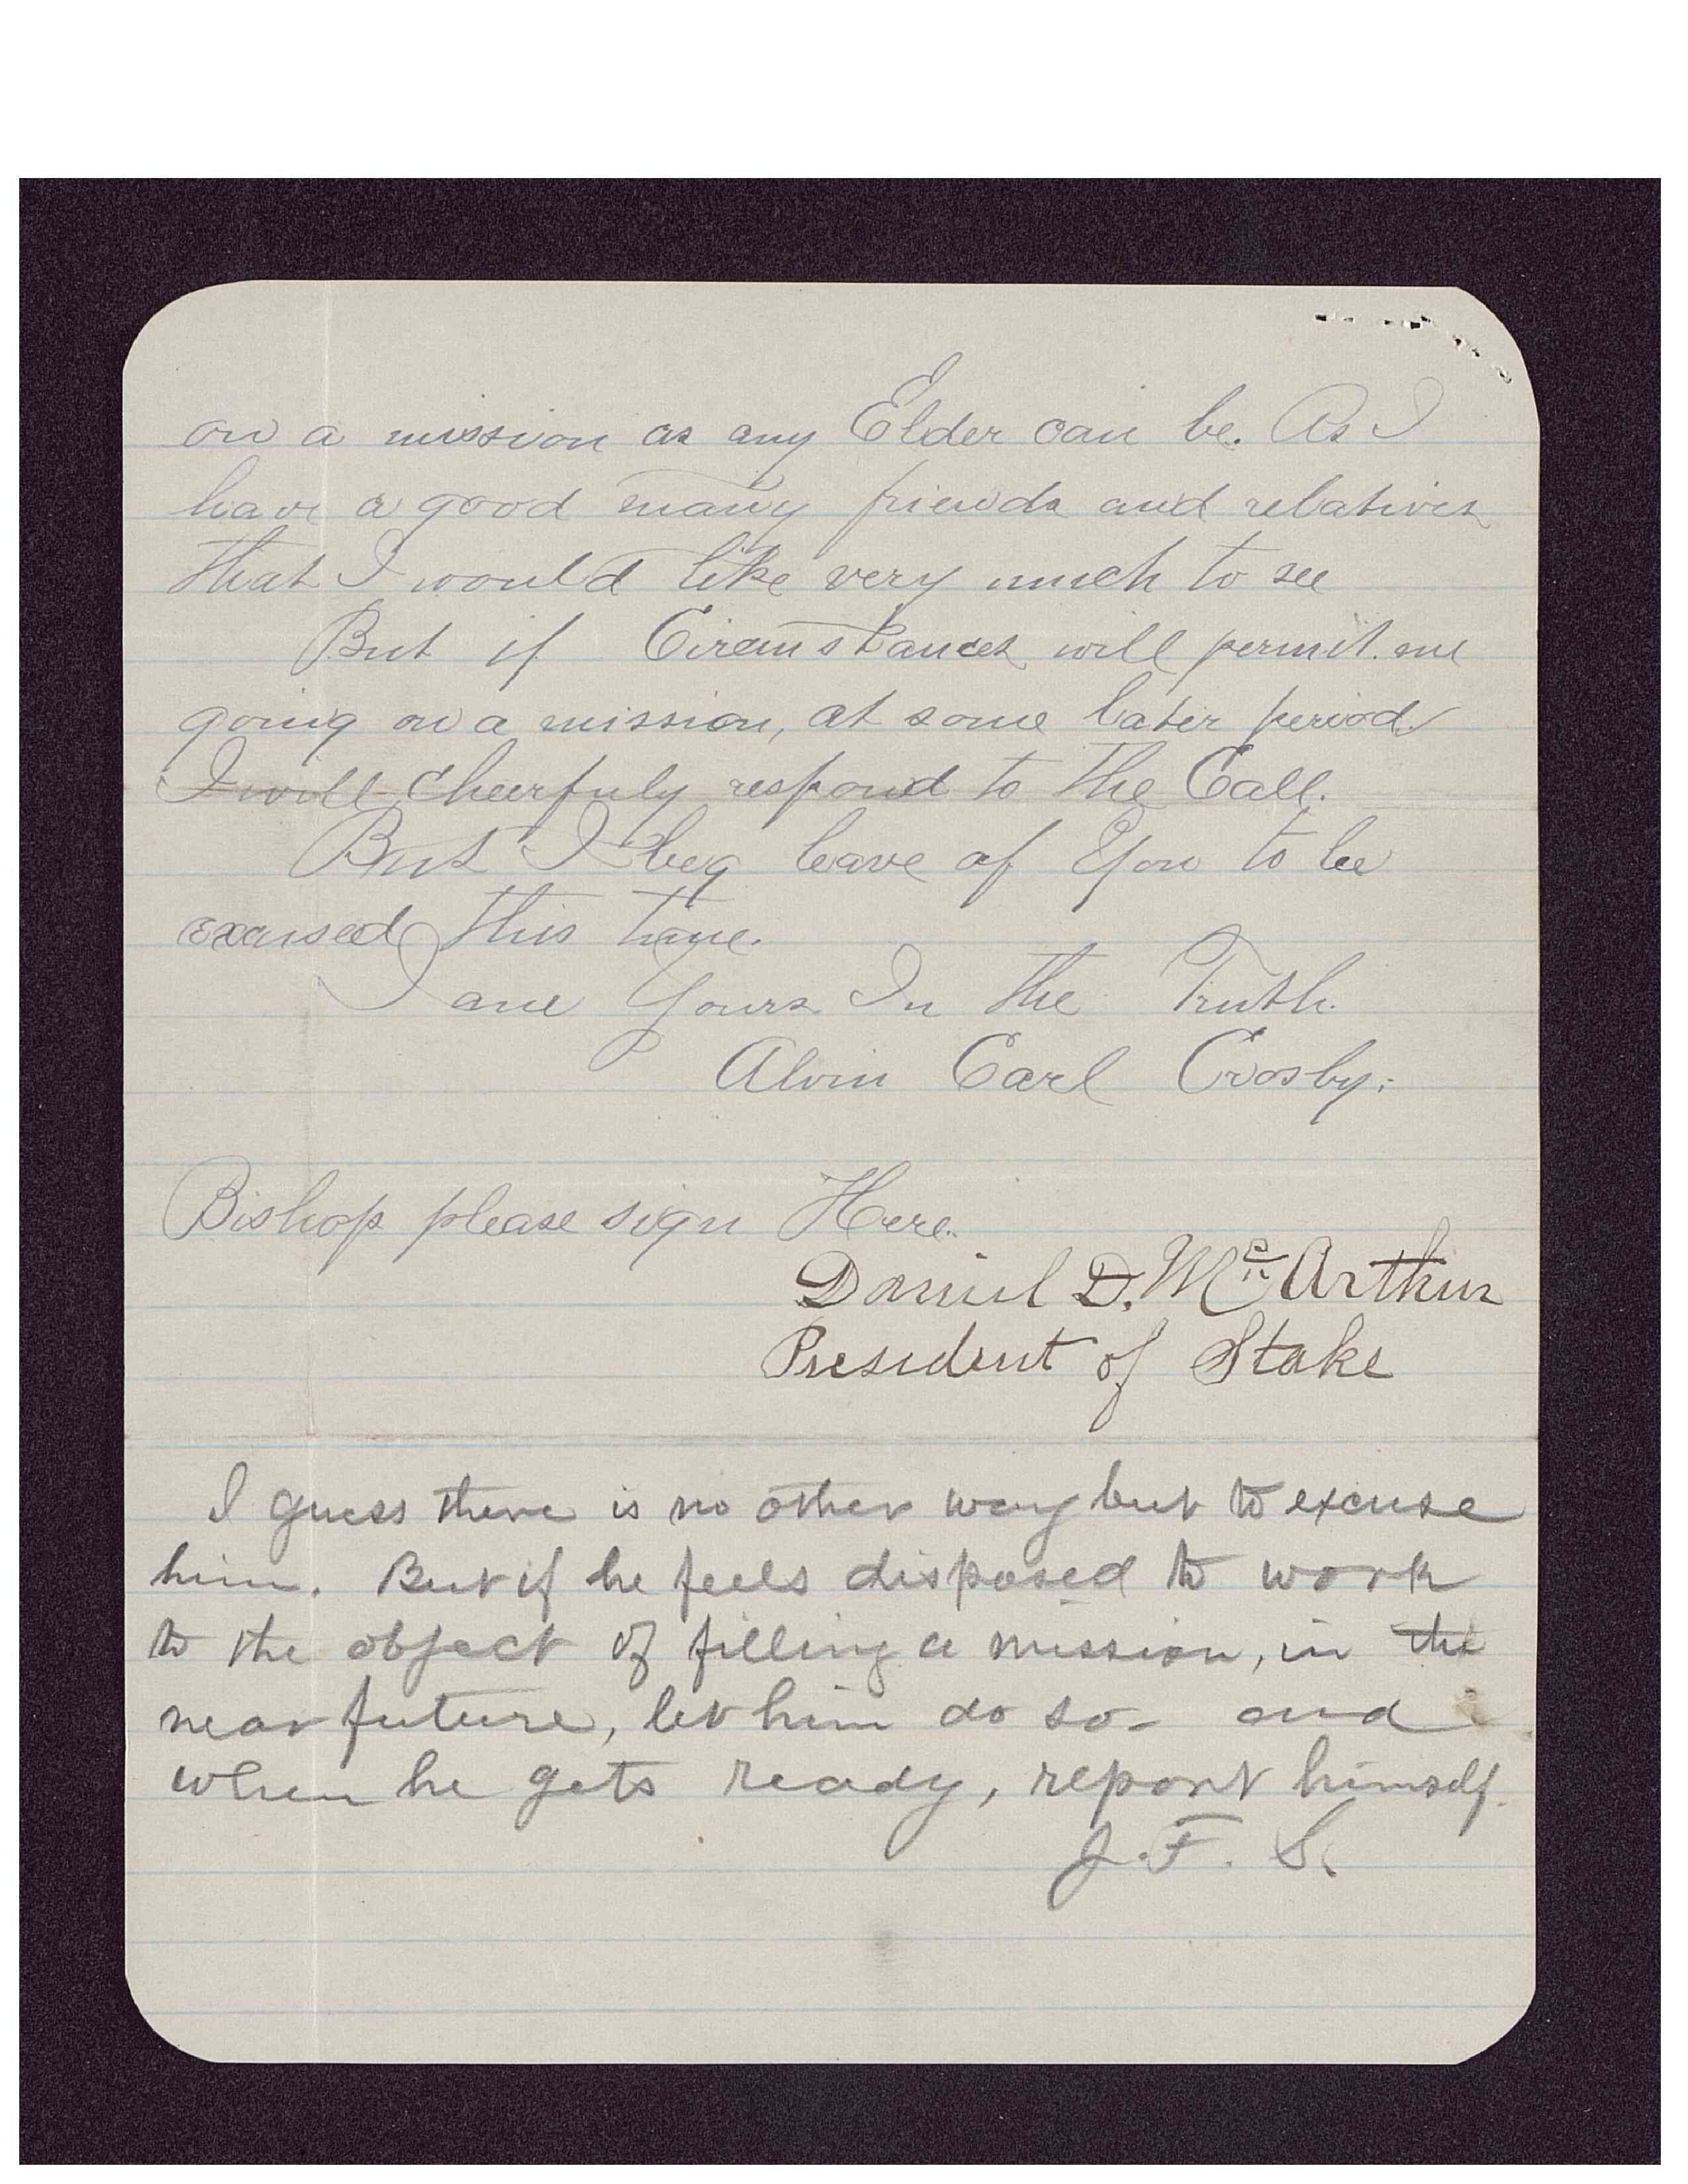 on a mission as any Elder can be. As I
have a good many friends and relatives
that I would like very much to see
But if Circumstances will permit. me
going on a mission, at some later period.
I will cheerfuly respond to the Call.
But I beg leave of You to be
excused this time.
I am Yours In the Truth.
Alvin Earl Crosby.
Bishop please sign Here.
Daniel D. McArthur
President of Stake
I guess there is no other way but to excuse
him. But if he feels disposed to work
to the object of filling a mission, in the
near future, let him do so - and
when he gets ready, report himself.
J. F. S.